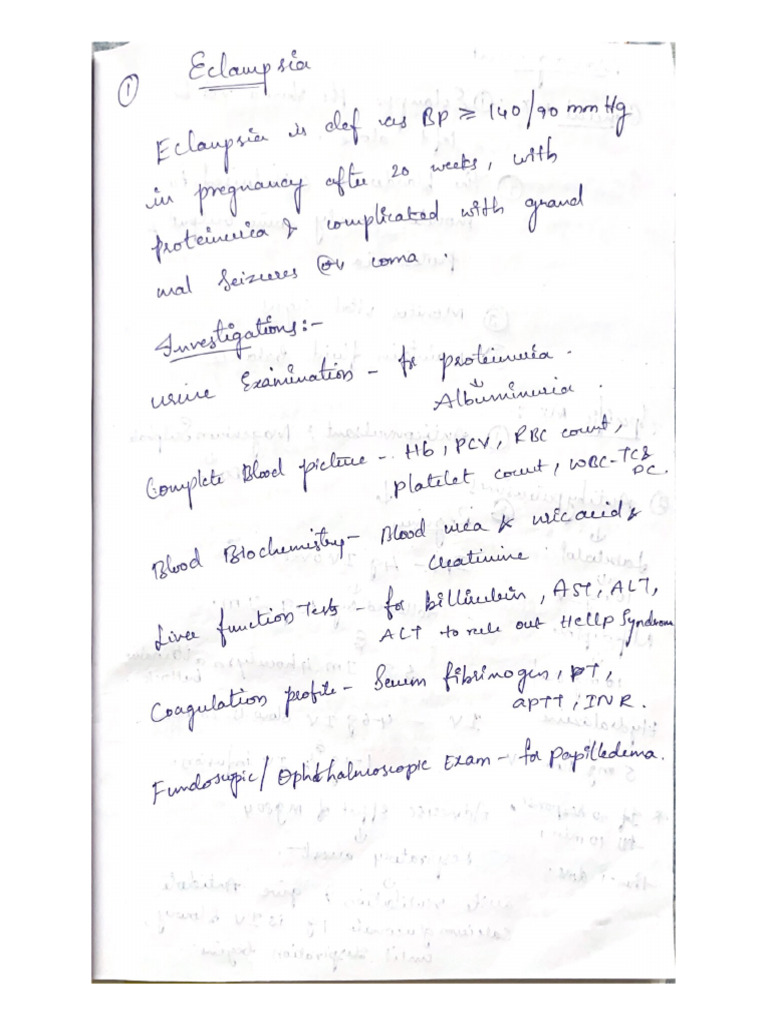 ①
Eclampsia
Eclaupsia is def as BP ≥ 140/90 mmHg
in pregnancy after 20 weeks, with
proteinuria & complicated with grand
mal seizures (or) coma.
Investigations:-
urine Examination - for proteinuria.
↓
Albuminuria.
Complete Blood picture - Hb, PCV, RBC count,
platelet count, WBC-TC &
DC.
Blood Biochemistry - Blood urea & uric acid &
Creatinine
Liver function Tests - for billirubin, AST, ALT,
ALT to rule out HELLP Syndrom
Coagulation profile - Serum fibrinogen, PT,
aPTT, INR.
Fundoscopic/Ophthalmoscopic Exam - for papilledema.